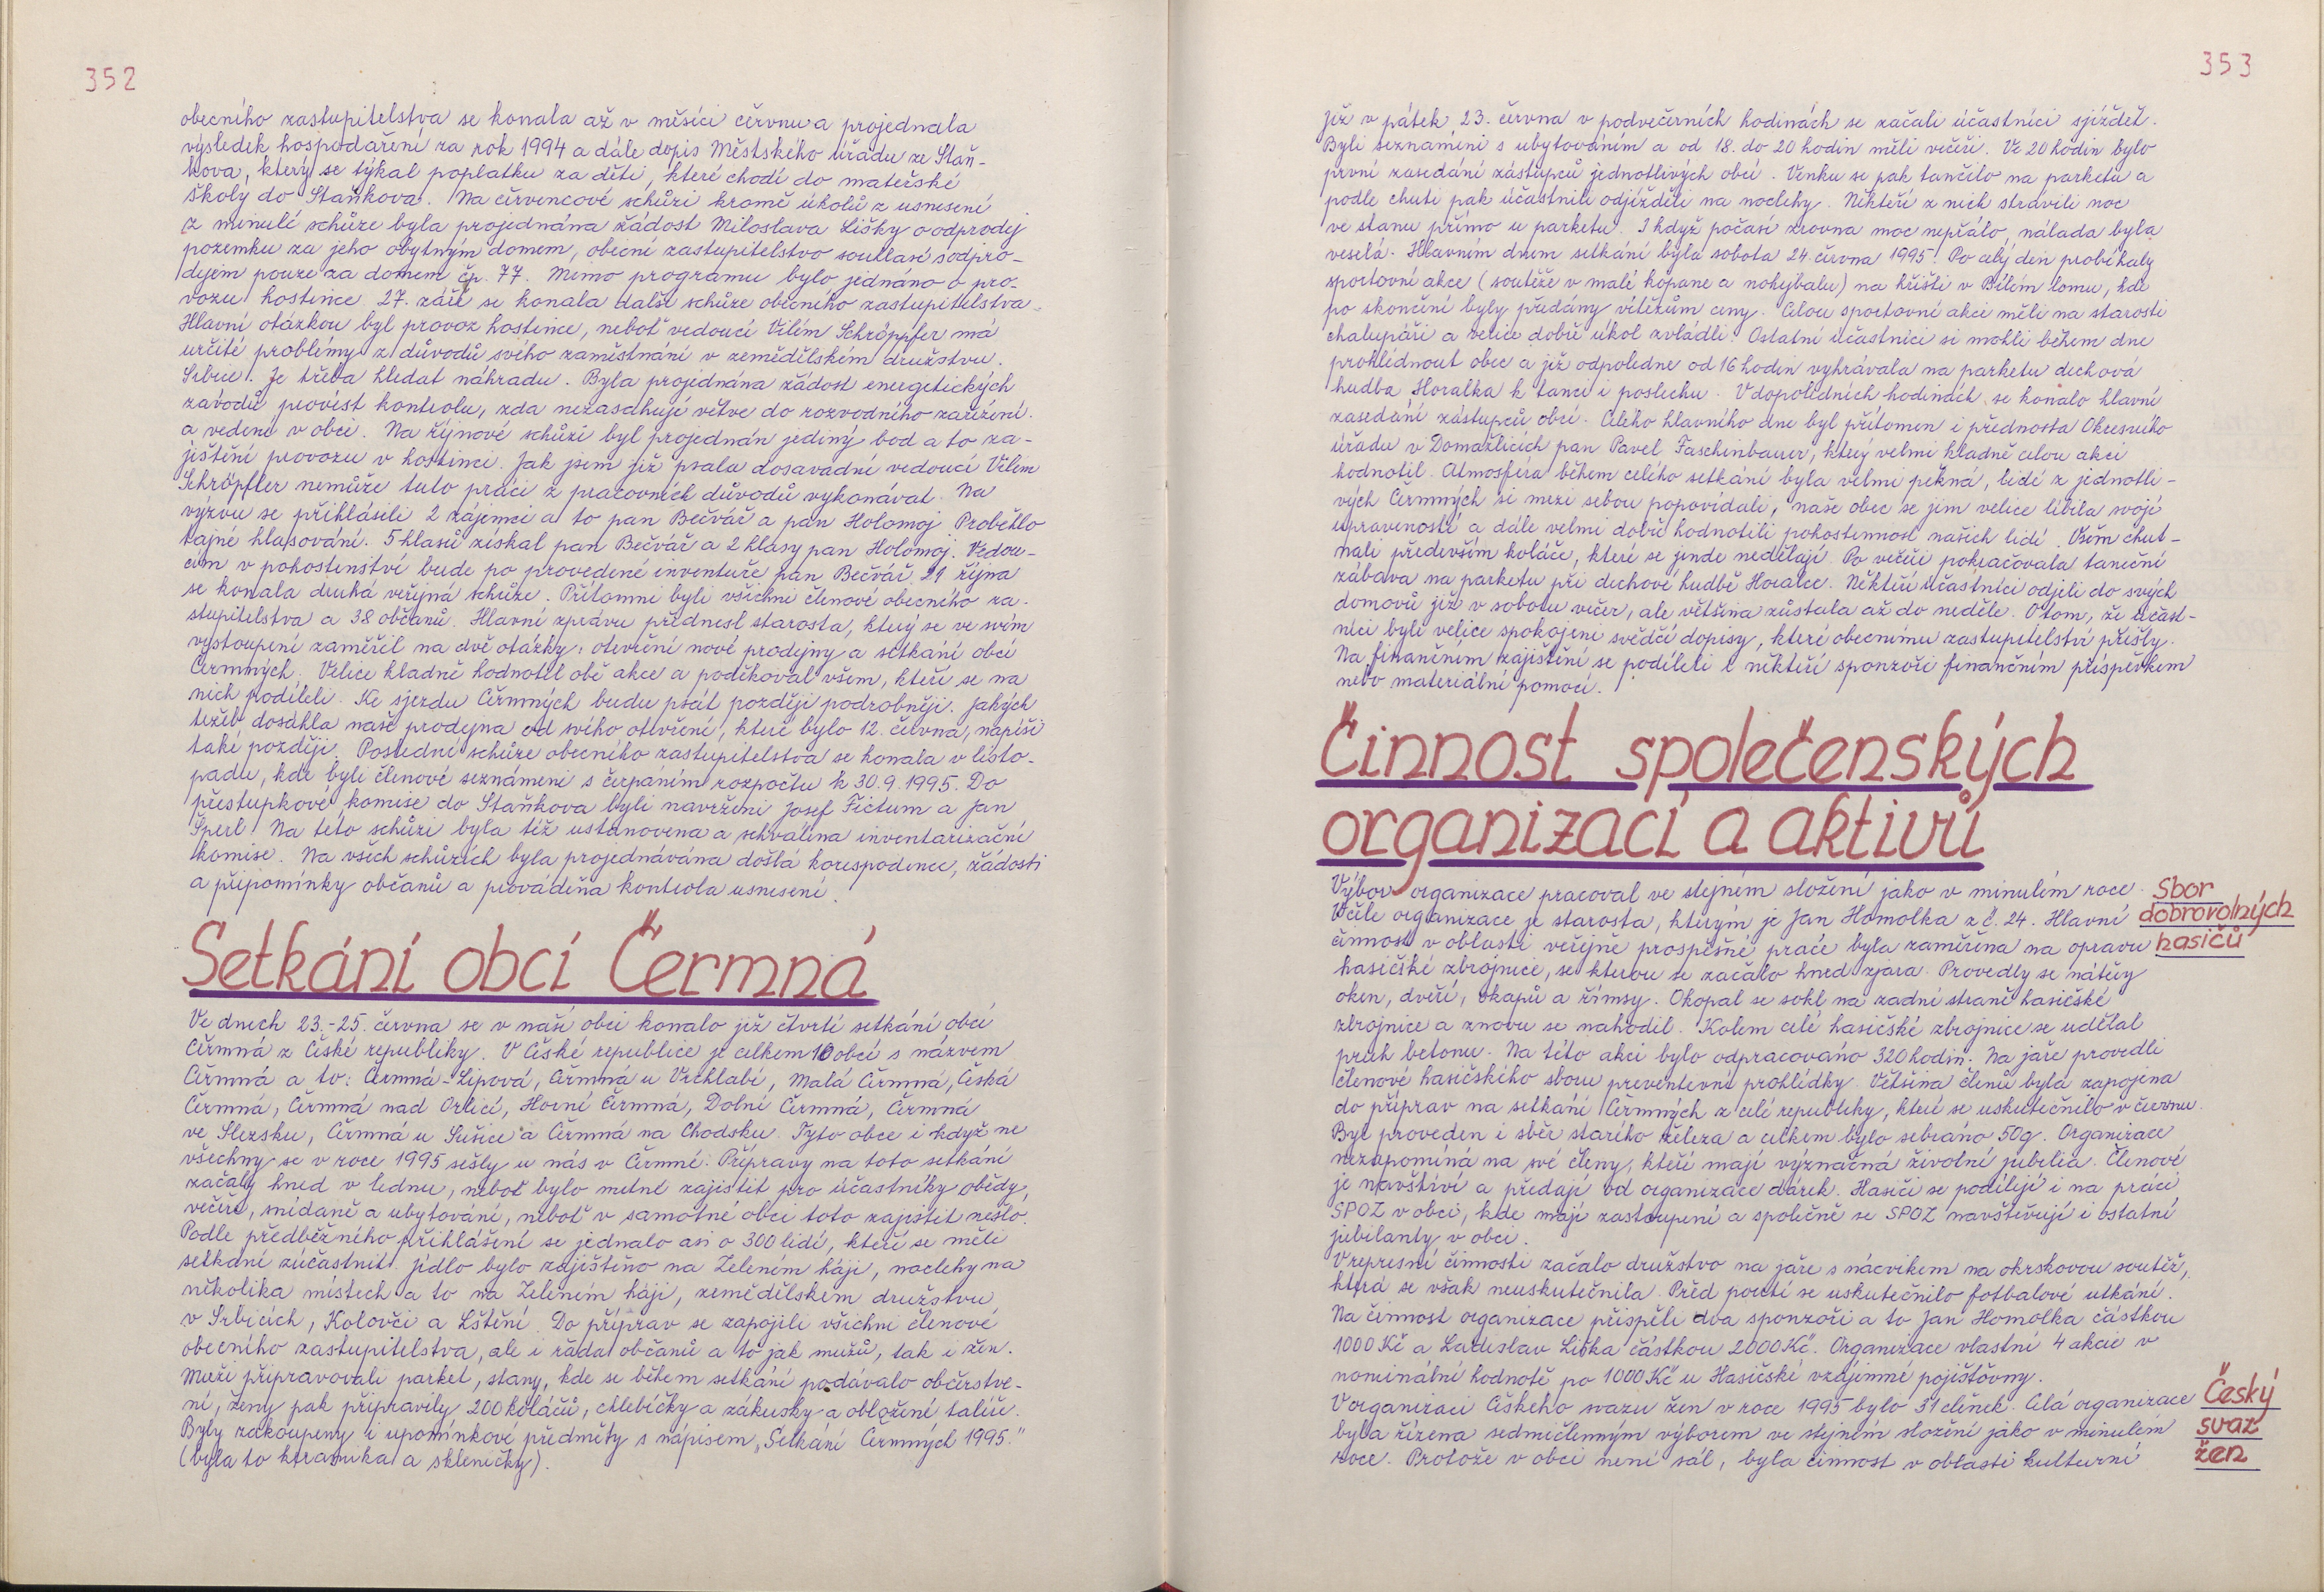 352
obecního zastupitelstva se konala až v měsíci červnu a projednala
výsledek hospodaření za rok 1994 a dále dopis Městského úřadu ze Staň-
kova, který se týkal poplatku za děti, které chodí do mateřské
školy do Staňkova. Na červencové schůzi kromě úkolů z usnesení
z minulé schůze byla projednána žádost Miloslava Lišky o odprodej
pozemku za jeho obytným domem, obecní zastupitelstvo souhlasí s odpro-
dejem pouze za domem čp. 77. Mimo programu bylo jednáno o pro-
vozu hostince. 27. září se konala další schůze obecního zastupitelstva.
Hlavní otázkou byl provoz hostince, neboť vedoucí Vilém Schröpfer má
určité problémy z důvodů svého zaměstnání v zemědělském družstvu.
Srbice. Je třeba hledat náhradu. Byla projednána žádost energetických
závodů provést kontrolu, zda nezasahují větve do rozvodného zařízení.
a vedení v obci. Na říjnové schůzi byl projednán jediný bod a to za-
jištění provozu v hostinci. Jak jsem již psala dosavadní vedoucí Vilém
Schröpfer nemůže tuto práci z pracovních důvodů vykonávat. Na
výzvu se přihlásili 2 zájemci a to pan Bečvář a pan Holomoj. Proběhlo
tajné hlasování. 5 hlasů získal pan Bečvář a 2 hlasy pan Holomoj. Vedou-
cím v pohostinství bude po provedené inventuře pan Bečvář. 21 října
se konala druhá veřejná schůze. Přítomni byli všichni členové obecního za-
stupitelstva a 38 občanů. Hlavní zprávu přednesl starosta, který se ve svém
vystoupení zaměřil na dvě otázky: otevření nové prodejny a setkání obcí
Čermných. Velice kladně hodnotil obě akce a poděkoval všem, kteří se na
nich podíleli. Ke sjezdu Čermných budu psát později podrobněji. Jakých
tržeb dosáhla naše prodejna od svého otvření, které bylo 12. června, napíši
také později. Poslední schůze obecního zastupitelstva se konala v listo-
padu, kde byli členové seznámeni s čerpáním rozpočtu k 30.9.1995. Do
přestupkové komise do Staňkova byli navrženi Josef Fictum a Jan
Šperl. Na této schůzi byla též ustanovena a schválena inventarizační
komise. Na všech schůzích byla projednávána došlá korespodence, žádosti
a připomínky občanů a prováděna kontrola usnesení.
Setkání obcí Čermná
Ve dnech 23.-25. června se v naší obci konalo již čtvrté setkání obcí
Čermná z České republiky. V České republice je celkem 10 obcí s názvem
Čermná a to: Čermná-Lipová, Čermná u Vrchlabí, Malá Čermná, Česká
Čermná, Čermná nad Orlicí, Horní Čermná, Dolní Čermná, Čermná
ve Slezsku, Čermná u Sušice a Čermná na Chodsku. Tyto obce i když ne
všechny se v roce 1995 sešly u nás v Čermné. Přípravy na toto setkání
začaly hned v lednu, neboť bylo nutné zajistit pro účastníky obědy,
večeře, snídaně a ubytování, neboť v samotné obci toto zajistit nešlo.
Podle předběžného přihlášení se jednalo asi o 300 lidí, kteří se měli
setkání zúčastnit. Jídlo bylo zajištěno na Zeleném háji, noclehy na
několika místech a to na Zeleném háji, zemědělském družstvu
v Srbicích, Kolovči a Lštění. Do příprav se zapojili všichni členové
obecního zastupitelstva, ale i řada občanů a to jak mužů, tak i žen.
Muži připravovali parket, stany, kde se během setkání podávalo občerstve-
ní, ženy pak připravily 200 koláčů, chlebíčky a zákusky a obložení talíře.
Byly zakoupeny i upomínkové předměty s nápisem „Setkání Čermných 1995."
(byla to keramika a skleničky).
353
Již v pátek 23. června v podvečerních hodinách se začali účastníci sjíždět.
Byli seznámeni s ubytováním a od 18. do 20 hodin měli večeři. Ve 20 hodin bylo
první zasedání zástupců jednotlivých obcí. Venku se pak tančilo na parketu a
podle chuti pak účastníci odjížděli na noclehy. Někteří z nich strávili noc
ve stanu přímo u parketu. I když počasí zrovna moc nepřálo, nálada byla
veselá. Hlavním dnem setkání byla sobota 24. června 1995. Po celý den probíhaly
sportovní akce (soutěže v malé kopané a nohejbalu) na hřišti v Bílém lomu, kde
po skončení byly předány vítězům ceny. Celou sportovní akci měli na starosti
chalupáři a velice dobře úkol zvládli. Ostatní účastníci si mohli během dne
prohlédnout obec a již odpoledne od 16 hodin vyhrávala na parketu dechová
hudba Horalka k tanci i poslechu. V dopoledních hodinách se konalo hlavní
zasedání zástupců obcí. Celého hlavního dne byl přítomen i přednosta Okresního
úřadu v Domažlicích pan Pavel Faschinbauer, který velmi kladně celou akci
hodnotil. Atmosféra během celého setkání byla velmi pěkná, lidé z jednotli-
vých Čermných si mezi sebou popovídali, naše obec se jim velice líbila svojí
upraveností a dále velmi dobře hodnotili pohostinnost našich lidí. Všem chut-
nali především koláče, které se jinde nedělají. Po večeři pokračovala taneční
zábava na parketu při dechové hudbě Horalce. Někteří účastníci odjeli do svých
domovů již v sobotu večer, ale většina zůstala až do neděle. O tom, že účast-
níci byli velice spokojeni svědčí dopisy, které obecnímu zastupitelství přišly.
Na finančním zajištění se podíleli i někteří sponzoři finančním příspěvkem
nebo materiální pomocí.
Činnost společenských
organizací a aktivů
Sbor
dobrovolných
hasičů
Výbor organizace pracoval ve stejném složení jako v minulém roce.
V čele organizace je starosta, kterým je Jan Homolka z č. 24. Hlavní
činnost v oblasti veřejně prospěšné práce byla zaměřena na opravu
hasičské zbrojnice, se kterou se začalo hned zjara. Provedly se nátěry
oken, dveří, okapů a římsy. Okopal se sokl na zadní straně hasičské
zbrojnice a znovu se nahodil. Kolem celé hasičské zbrojnice se udělal
pruh betonu. Na této akci bylo odpracováno 320 hodin. Na jaře provedli
členové hasičského sboru preventivní prohlídky. Většina členů byla zapojena
do příprav na setkání Čermných z celé republiky, které se uskutečnilo v červnu.
Byl proveden i sběr starého železa a celkem bylo sebráno 50q. Organizace
nezapomíná na své členy, kteří mají význačná životní jubilia. Členové
je navštíví a předají od organizace dárek. Hasiči se podílejí i na práci
SPOZ v obci, kde mají zastoupení a společně se SPOZ navštěvují i ostatní
jubilanty v obci.
V represní činnosti začalo družstvo na jaře s nácvikem na okrskovou soutěž,
která se však neuskutečnila. Před poutí se uskutečnilo fotbalové utkání.
Na činnost organizace přispěli dva sponzoři a to Jan Homolka částkou
1000 Kč a Ladislav Liška částkou 2000 Kč. Organizace vlastní 4 akcie v
nominální hodnotě po 1000 Kč u Hasičské vzájemné pojišťovny.
Český
svaz
žen
V organizaci Českého svazu žen v roce 1995 bylo 31 členek. Celá organizace
byla řízena sedmičlenným výborem ve stejném složení jako v minulém
roce. Protože v obci není sál, byla činnost v oblasti kulturní